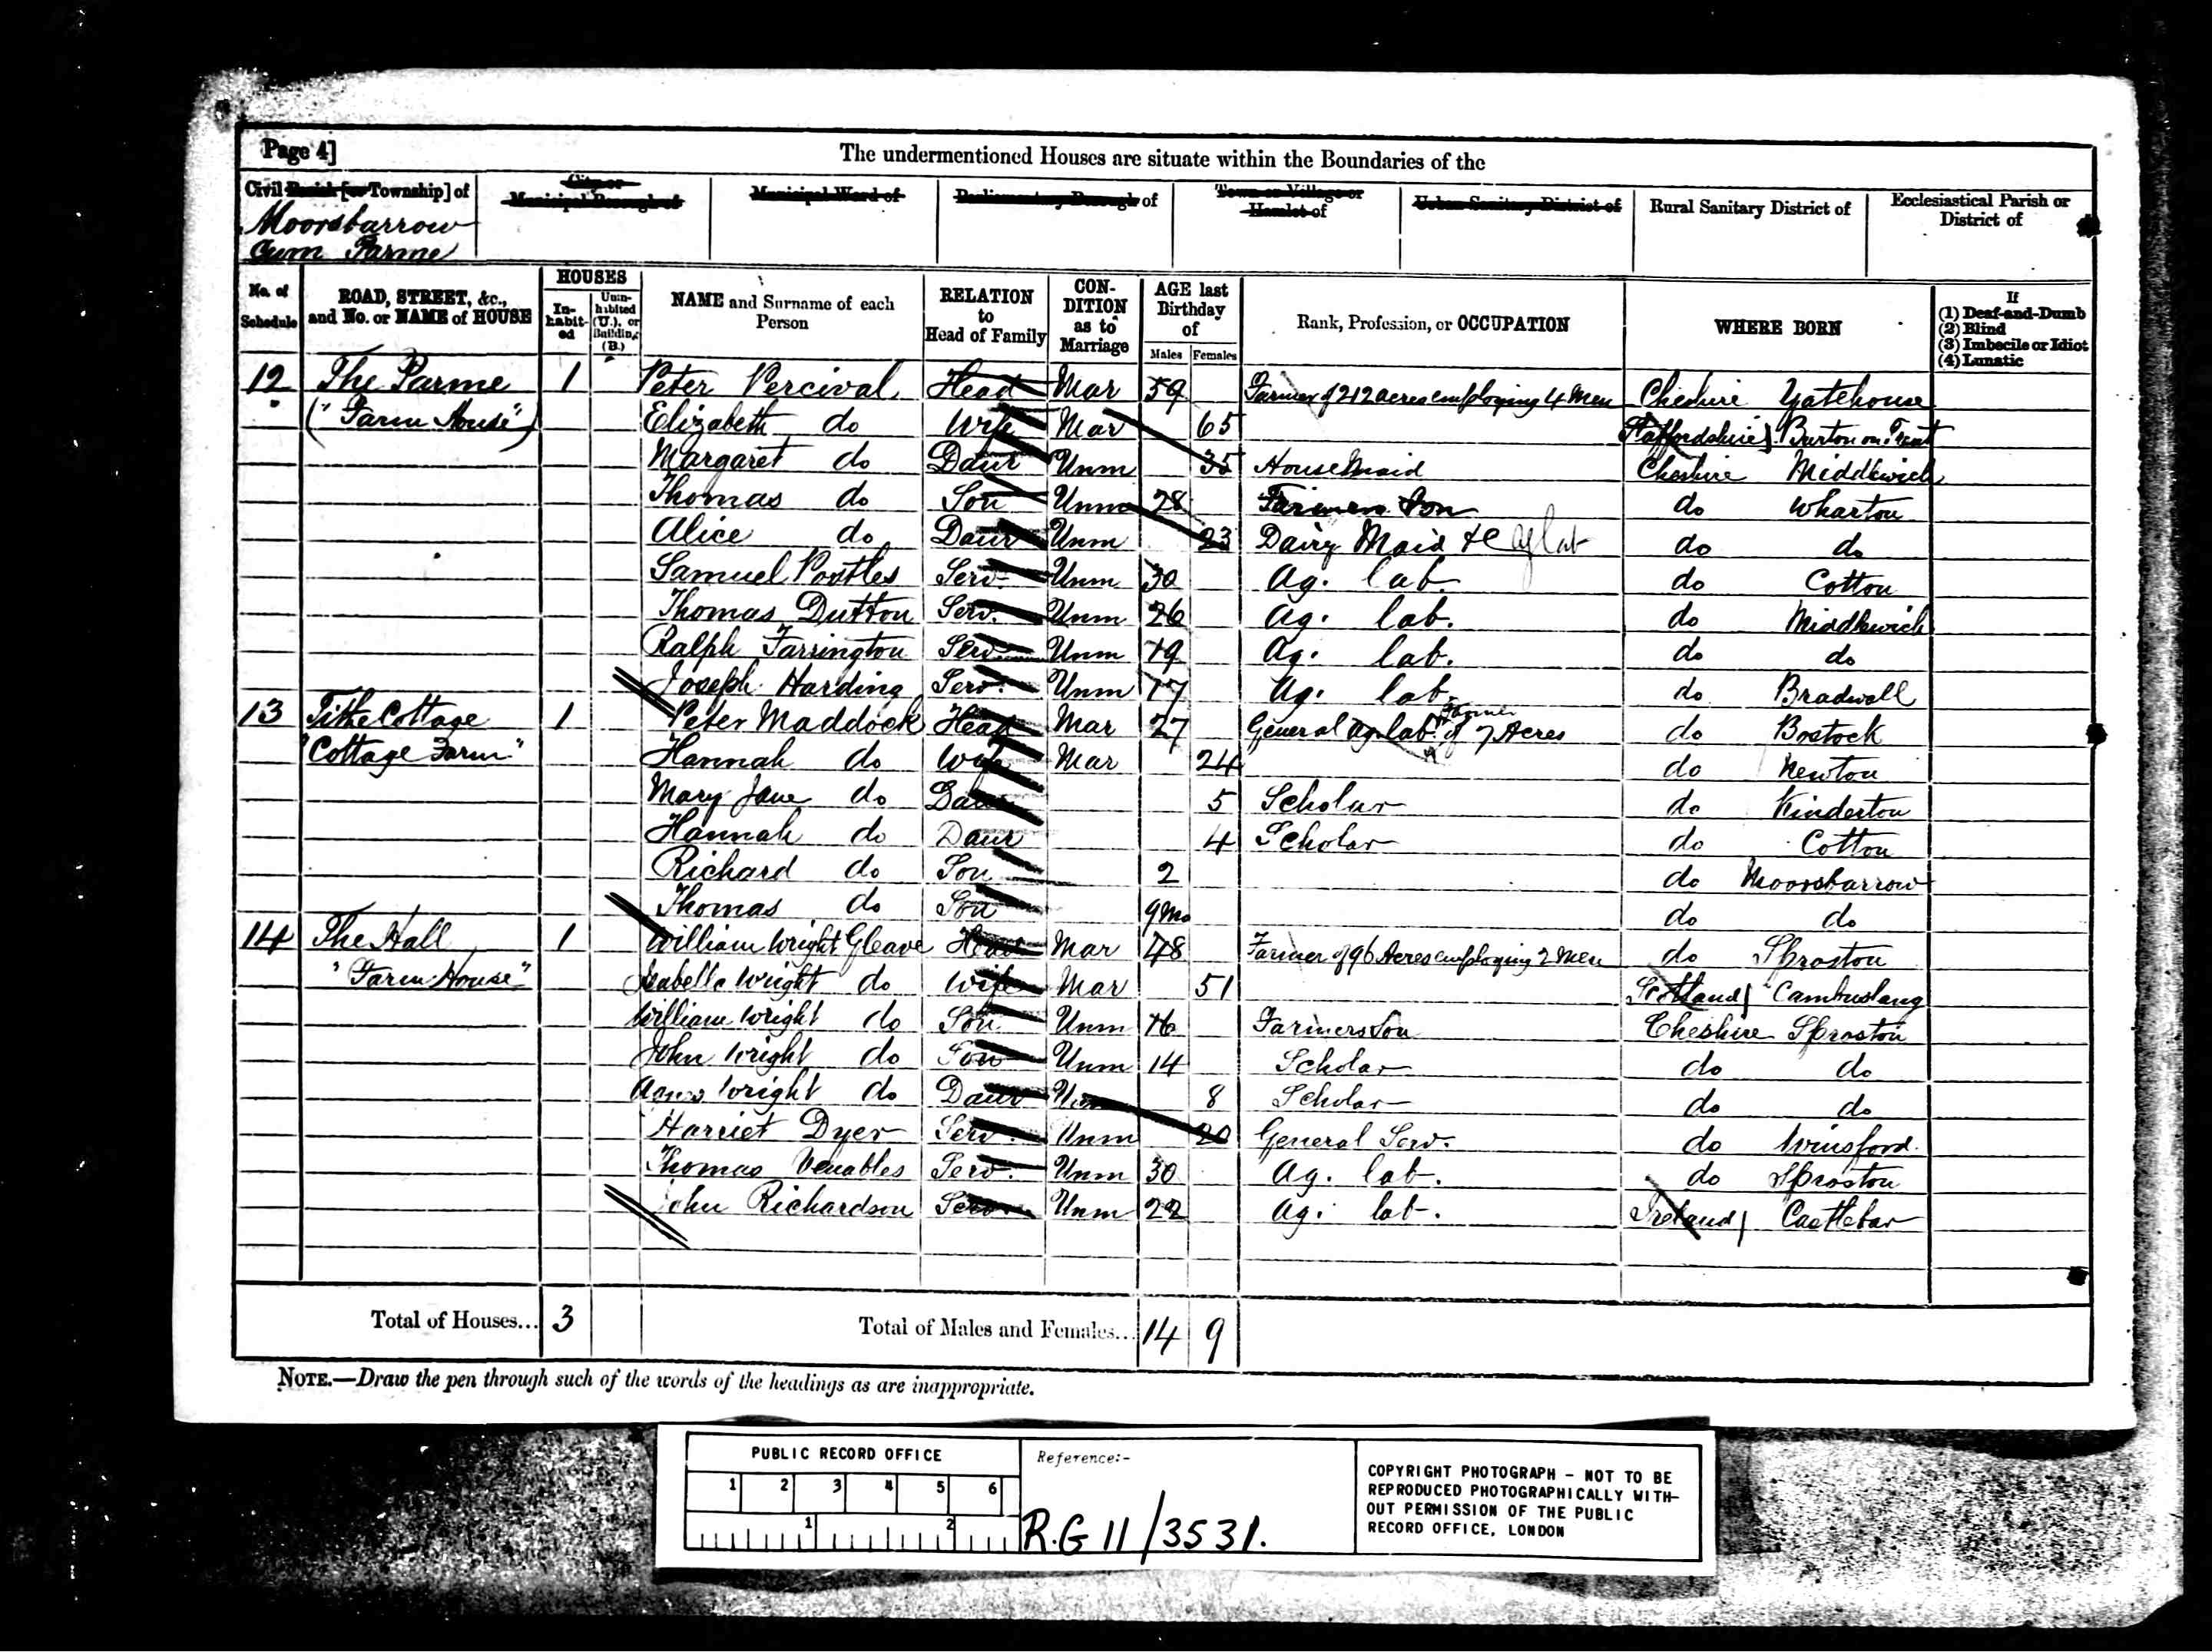 Page 4]
The undermentioned Houses are situate within the Boundaries of the
Civil Parish [or Township] of
City or Municipal Borough of
Municipal Ward of
Parliamentary Borough of
Town or Village or Hamlet of
Urban Sanitary District of
Rural Sanitary District of
Ecclesiastical Parish or District of
Moorsbarrow
cum Parme
No. of Schedule
ROAD, STREET, &c., and No. or NAME of HOUSE
HOUSES
In-habit-ed
Unin-habited (U.), or Building (B.)
NAME and Surname of each Person
RELATION to Head of Family
CON-DITION as to Marriage
AGE last Birthday of
Males Females
Rank, Profession, or OCCUPATION
WHERE BORN
If
(1) Deaf-and-Dumb
(2) Blind
(3) Imbecile or Idiot
(4) Lunatic
12 The Parme 1 Peter Percival Head Mar 59 Farmer of 212 acres employing 4 Men Cheshire Yatehouse
("Farm House") Elizabeth do Wife Mar 65 Staffordshire Burton on Trent
Margaret do Daur Unm 35 Housemaid Cheshire Middlewich
Thomas do Son Unm 28 Farmers Son do Wharton
Alice do Daur Unm 23 Dairy Maid do do
Samuel Postles Serv. Unm 30 Ag. lab. do Cotton
Thomas Dutton Serv. Unm 26 Ag. lab. do Middlewich
Ralph Farrington Serv Unm 19 Ag. lab. do do
Joseph Harding Serv. Unm 17 Ag. lab. do Bradwall
13 Tithe Cottage 1 Peter Maddock Head Mar 27 General Ag. lab. Farmer of 7 Acres do Bostock
"Cottage Farm" Hannah do Wife Mar 24 do Newton
Mary Jane do Daur 5 Scholar do Kinderton
Hannah do Daur 4 Scholar do Cotton
Richard do Son 2 do Moorsbarrow
Thomas do Son 9 Mo do do
14 The Hall 1 William Wright Gleave Head Mar 48 Farmer of 96 Acres employing 2 Men do Sproston
"Farm House" Isabella Wright do Wife Mar 51 Scotland Cambuslang
William Wright do Son Unm 16 Farmers Son Cheshire Sproston
John Wright do Son Unm 14 Scholar do do
Agnes Wright do Daur Unm 8 Scholar do do
Harriet Dyer Serv. Unm 20 General Serv. do Winsford
Thomas Venables Serv. Unm 30 Ag. lab. do Sproston
John Richardson Serv Unm 22 Ag. lab. Ireland Castlebar
Total of Houses... 3 Total of Males and Females... 14 9
NOTE.—Draw the pen through such of the words of the headings as are inappropriate.
PUBLIC RECORD OFFICE
1 2 3 4 5 6
1 2
Reference:-
R.G 11/3531.
COPYRIGHT PHOTOGRAPH - NOT TO BE
REPRODUCED PHOTOGRAPHICALLY WITH-
OUT PERMISSION OF THE PUBLIC
RECORD OFFICE, LONDON